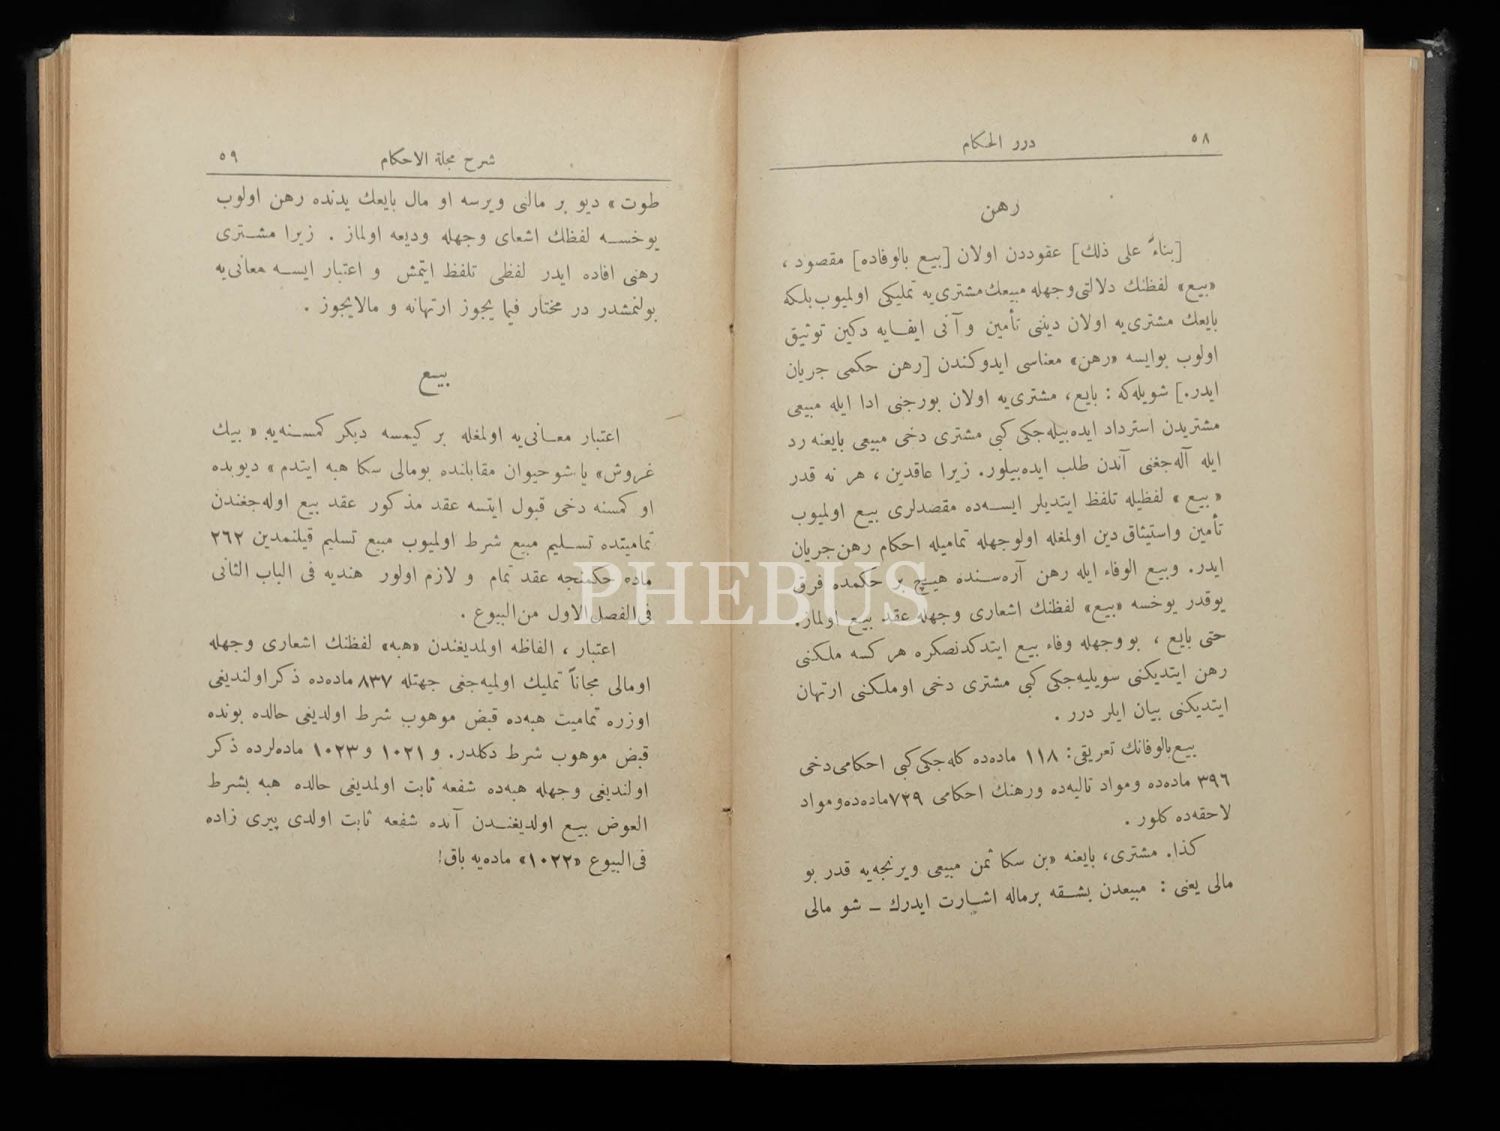 ٥٨
درر الحكام
رهن
[بناءً على ذلك] عقوددن اولان [بيع بالوفاده] مقصود ،
«بيع» لفظنك دلالتى وجهله مبيعك مشترى‌يه تمليكى اولميوب بلكه
بايعك مشترى‌يه اولان ديننى تأمين و آنى ايفايه دكين توثيق
اولوب بوايسه «رهن» معناسى ايدوكندن [رهن حكمى جريان
ايدر.] شويله‌كه : بايع، مشترى‌يه اولان بورجنى ادا ايله مبيعى
مشتريدن استرداد ايده‌بيله‌جكى كبى مشترى دخى مبيعى بايعنه رد
ايله آله‌جغنى آندن طلب ايده‌بيلور. زيرا عاقدين ، هر نه قدر
«بيع» لفظيله تلفظ ايتديلر ايسه‌ده مقصدلرى بيع اولميوب
تأمين واستيثاق دين اولمغله اولوجهله تماميله احكام رهن جريان
ايدر. وبيع الوفاء ايله رهن آره‌سنده هيچ بر حكمده فرق
يوقدر يوخسه «بيع» لفظنك اشعارى وجهله عقد بيع اولماز.
حتى بايع ، بووجهله وفاء بيع ايتدكدنصكره هر كسه ملكنى
رهن ايتديكنى سويليه‌جكى كبى مشترى دخى اوملكنى ارتهان
ايتديكنى بيان ايلر درر .
بيع بالوفانك تعريفى: ١١٨ ماده‌ده كله‌جكى كبى احكامى دخى
٣٩٦ ماده‌ده ومواد تاليه‌ده ورهنك احكامى ٧٢٩ ماده‌ده ومواد
لاحقه‌ده كلور .
كذا. مشترى، بايعنه «بن سكا ثمن مبيعى ويرنجه‌يه قدر بو
مالى يعنى : مبيعدن بشقه برماله اشارت ايدرك ـ شو مالى
شرح مجلة الاحكام
٥٩
طوت» ديو بر مالنى ويرسه او مال بايعك يدنده رهن اولوب
يوخسه لفظك اشعاى وجهله وديعه اولماز . زيرا مشترى
رهنى افاده ايدر لفظى تلفظ ايتمش و اعتبار ايسه معانى‌يه
بولنمشدر در مختار فيما يجوز ارتهانه و مالايجوز .
بيع
اعتبار معانى‌يه اولمغله بر كيمسه ديكر كمسنه‌يه «بيك
غروش» يا شوحيوان مقابلنده بومالى سكا هبه ايتدم» ديوبده
او كمسنه دخى قبول ايتسه عقد مذكور عقد بيع اوله‌جغندن
تماميتده تسليم مبيع شرط اولميوب مبيع تسليم قيلنمدين ٢٦٢
ماده حكمنجه عقد تمام و لازم اولور هنديه فى الباب الثانى
فى‌الفصل‌الاول من‌البيوع .
اعتبار ، الفاظه اولمديغندن «هبه» لفظنك اشعارى وجهله
اومالى مجاناً تمليك اولميه‌جغى جهتله ٨٣٧ ماده‌ده ذكر اولنديغى
اوزره تماميت هبه‌ده قبض موهوب شرط اولديغى حالده بونده
قبض موهوب شرط دكلدر. و ١٠٢١ و ١٠٢٣ ماده‌لرده ذكر
اولنديغى وجهله هبه‌ده شفعه ثابت اولمديغى حالده هبه بشرط
العوض بيع اولديغندن آنده شفعه ثابت اولدى پيرى زاده
فى‌البيوع «١٠٢٢» ماده‌يه باق!
PHEBUS